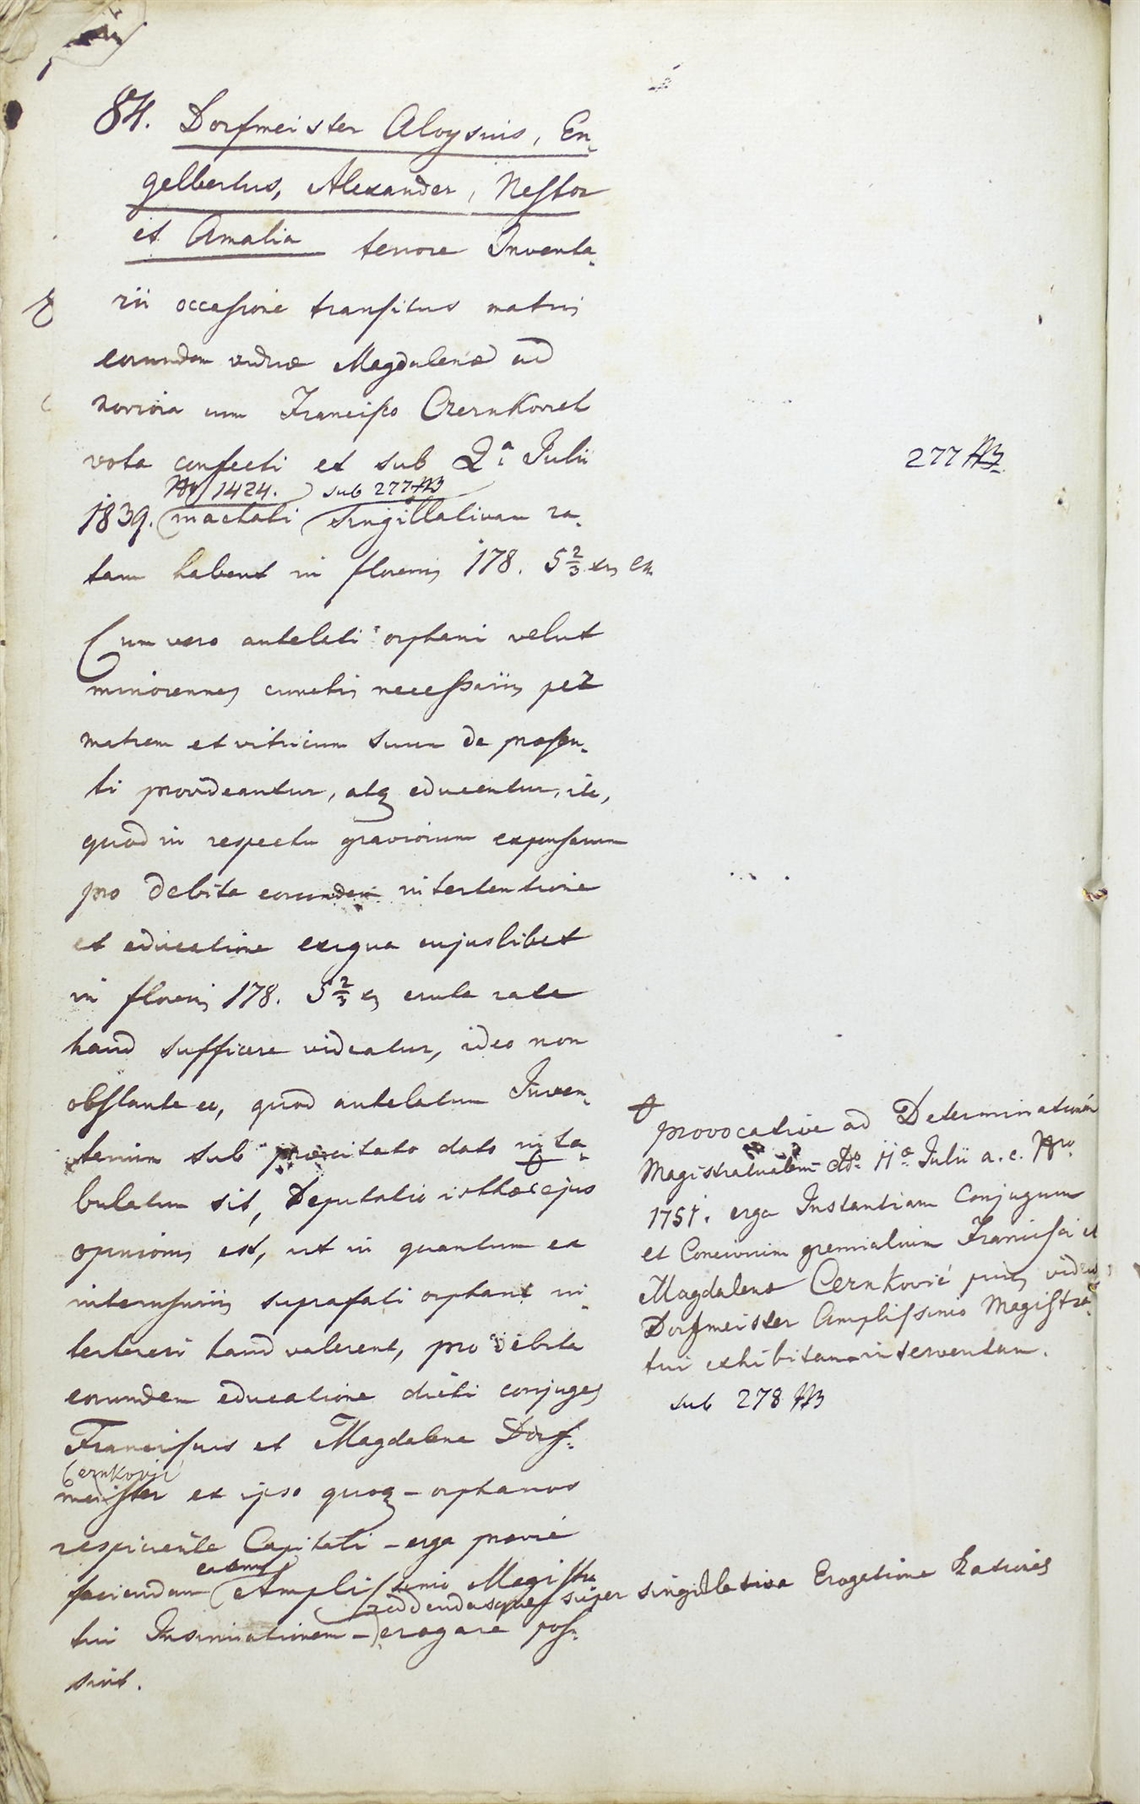 84. Dorfmeister Aloysius, En-
gelbertus, Alexander, Nestor
et Amalia tenore Inventa-
rii occasione transitus matris
eorundem viduae Magdalenae ad
noviora cum Francisco Czernkovich
vota confecti et sub 2a Julii
Nro 1424. sub 277
1839. mactati singillativam ra-
tam habent in florenis 178. 5 2/3 xr
277
Cum vero antelati orphani velut
minorennes cunctis necessariis per
matrem et vitricum suum de praesen-
ti provideantur, atq educentur, ite,
quod in respectu graviorum expensarum
pro debita eorundem intertentione
et educatione exigua cujuslibet
in florenis 178. 5 2/3 x erule rata
haud sufficere videatur, ideo non
obstante eo, quod antelatum Inven-
tarium sub praecitato dato inta-
bulatum sit, Deputatio isthaec ejus
opinionis est, ut in quantum ex
interusuriis suprafati orphani in-
terteneri haud valerent, pro debita
eorundem educatione dicti conjuges
Franciscus et Magdalena Dorf-
Cernković
meister ex ipso quoq orphanos
respiciente Capitali erga previe
faciendam eatenus Amplissimo Magistra
reddendasque super singillativa Erogatione Rationes
tui Insinuationem erogare pos-
sint.
provocative ad Determinationem
Magistratualem ddo 11a Julii a. c. Nro
1751. erga Instantiam Conjugum
et Concivium gremialium Francisci et
Magdalena Cernković prius vidua
Dorfmeister Amplissimo Magistra-
tui exhibitam interventam.
sub 278